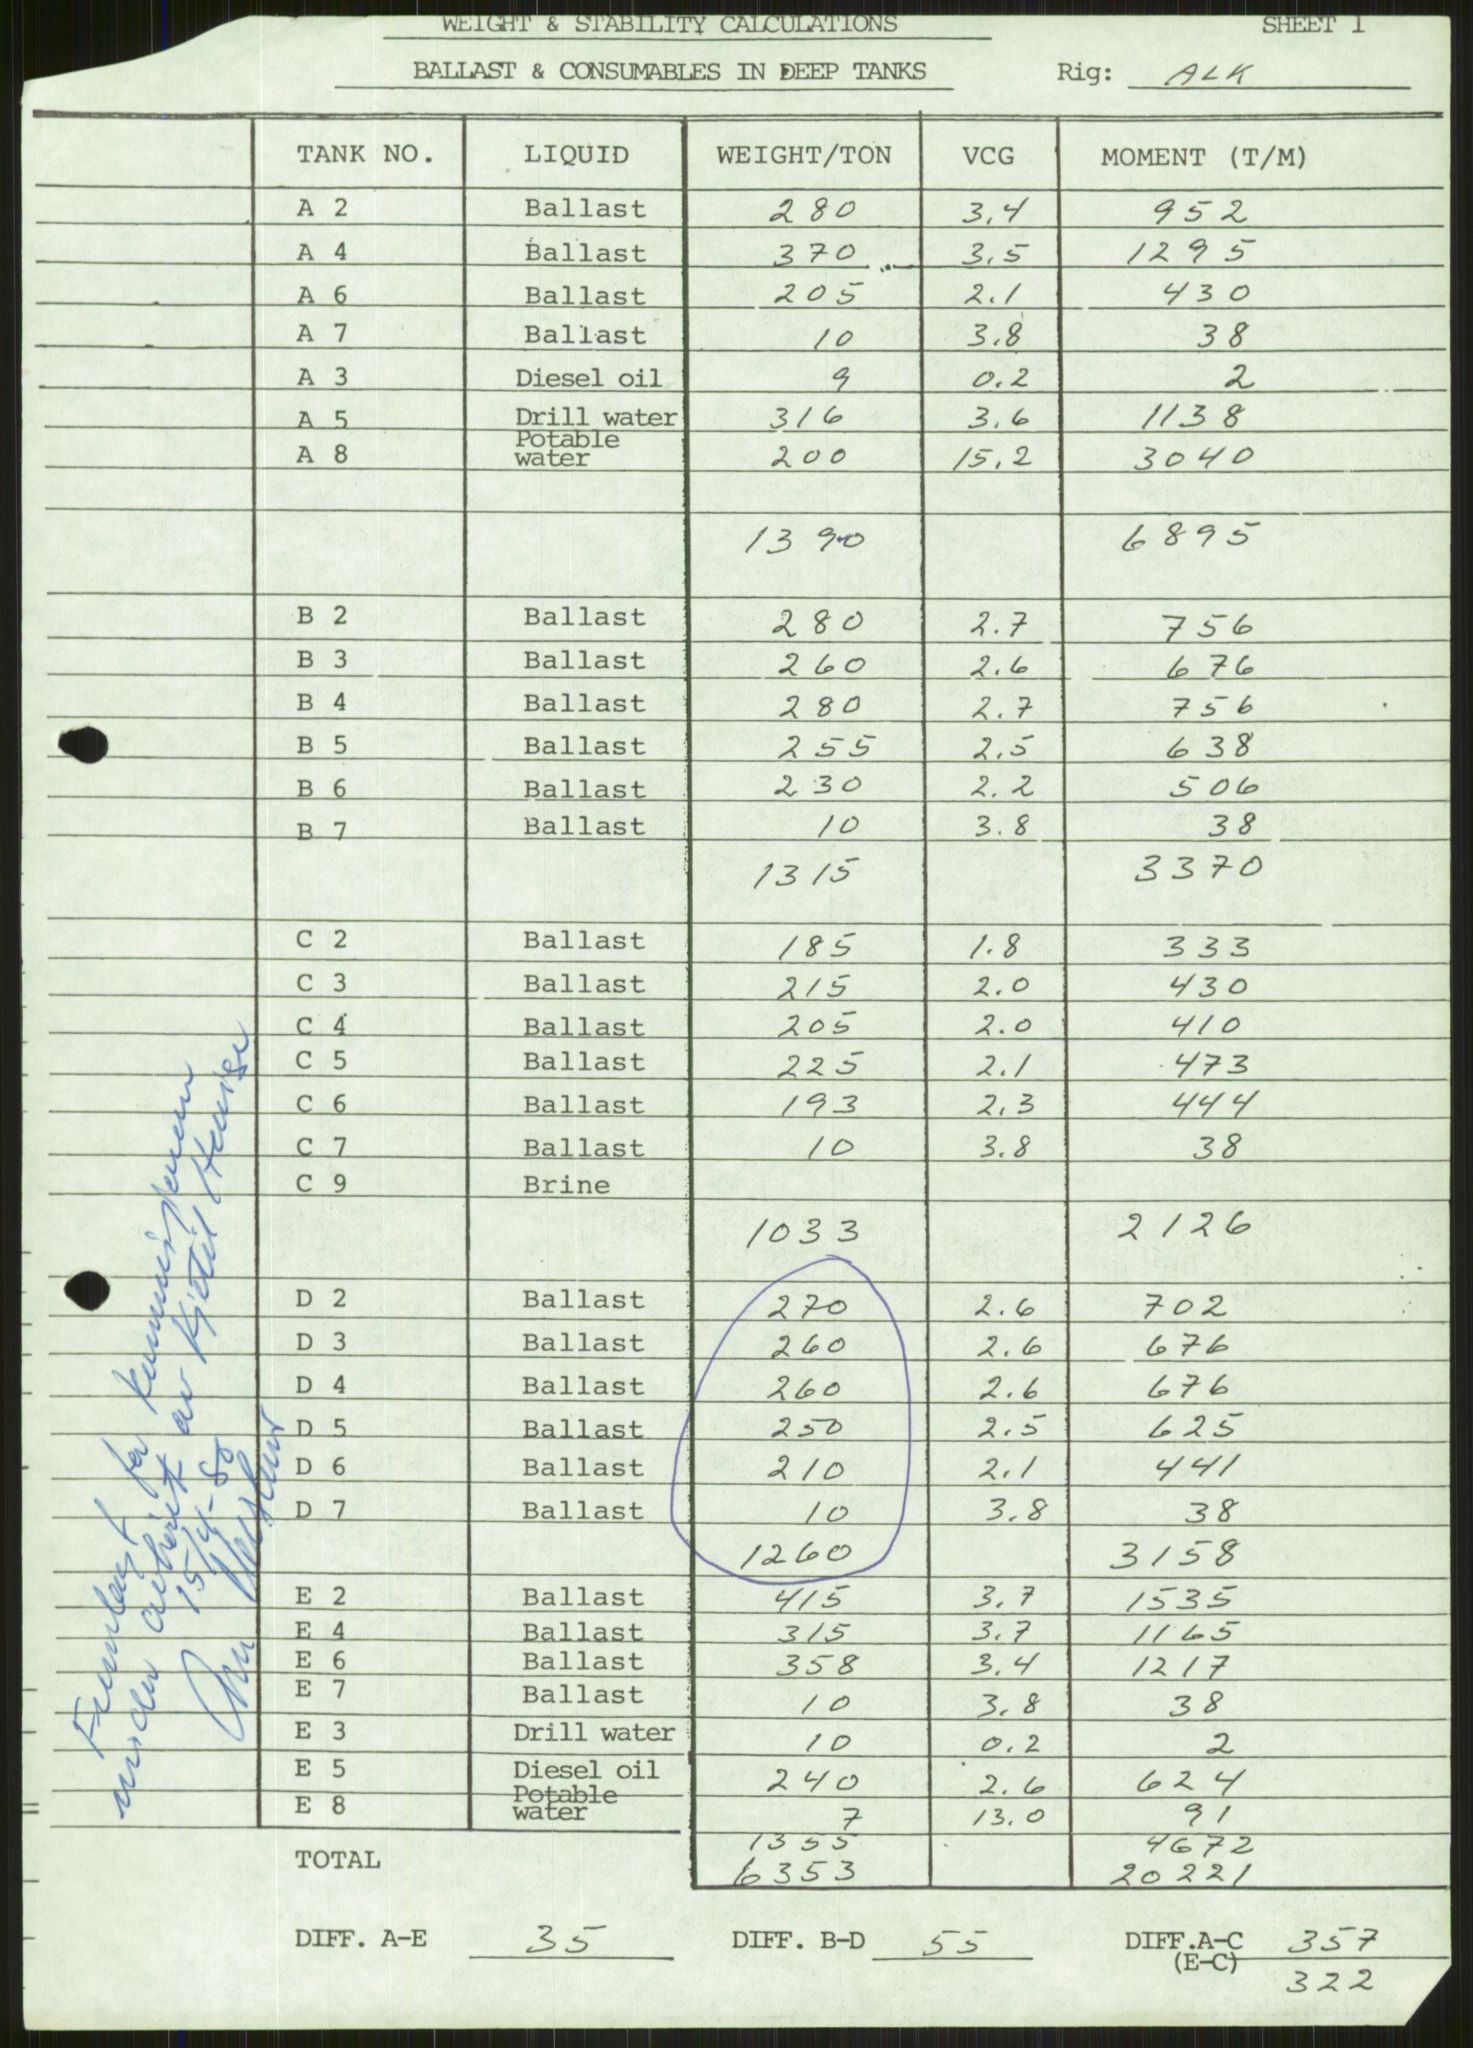 WEIGHT & STABILITY CALCULATIONS SHEET 1
BALLAST & CONSUMABLES IN DEEP TANKS Rig: ALK
TANK NO. LIQUID WEIGHT/TON VCG MOMENT (T/M)
A 2 Ballast 280 3.4 952
A 4 Ballast 370 3.5 1295
A 6 Ballast 205 2.1 430
A 7 Ballast 10 3.8 38
A 3 Diesel oil 9 0.2 2
A 5 Drill water 316 3.6 1138
A 8 Potable water 200 15.2 3040
1390 6895
B 2 Ballast 280 2.7 756
B 3 Ballast 260 2.6 676
B 4 Ballast 280 2.7 756
B 5 Ballast 255 2.5 638
B 6 Ballast 230 2.2 506
B 7 Ballast 10 3.8 38
1315 3370
C 2 Ballast 185 1.8 333
C 3 Ballast 215 2.0 430
C 4 Ballast 205 2.0 410
C 5 Ballast 225 2.1 473
C 6 Ballast 193 2.3 444
C 7 Ballast 10 3.8 38
C 9 Brine
1033 2126
D 2 Ballast 270 2.6 702
D 3 Ballast 260 2.6 676
D 4 Ballast 260 2.6 676
D 5 Ballast 250 2.5 625
D 6 Ballast 210 2.1 441
D 7 Ballast 10 3.8 38
1260 3158
E 2 Ballast 415 3.7 1535
E 4 Ballast 315 3.7 1165
E 6 Ballast 358 3.4 1217
E 7 Ballast 10 3.8 38
E 3 Drill water 10 0.2 2
E 5 Diesel oil 240 2.6 624
E 8 Potable water 7 13.0 91
1355 4672
TOTAL 6353 20221
DIFF. A-E 35 DIFF. B-D 55 DIFF.A-C 357
(E-C) 322
Fremlagt for kommisjonen
under avhøret av Kjetil Hauge
15/4-80